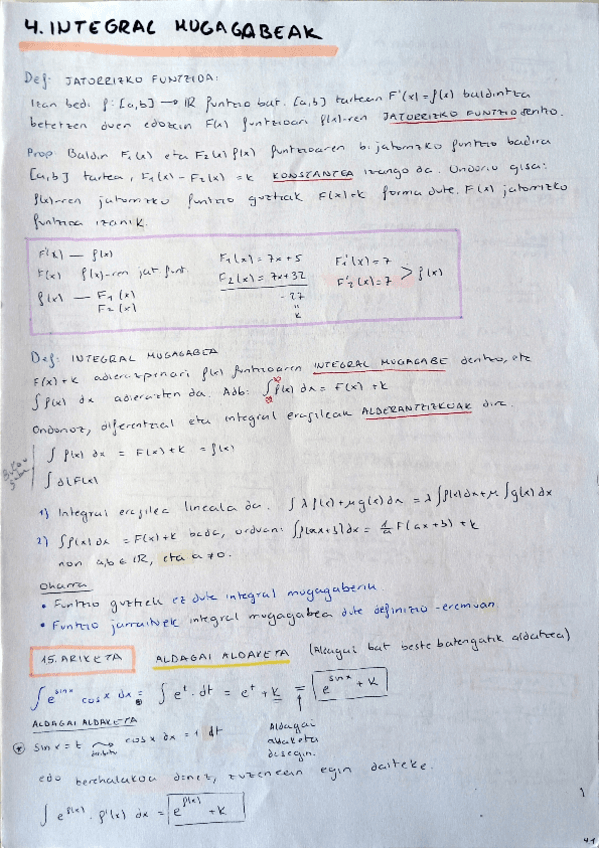 4. INTEGRAL MUGAGABEAK
Def: JATORRIZKO FUNTZIOA:
Izan bedi f: [a,b] → IR funtzio bat. [a,b] tartean F'(x) = f(x) baldintza
betetzen duen edozein F(x) funtzioari f(x)-ren JATORRIZKO FUNTZIO deritzo.
Prop: Baldin F₁(x) eta F₂(x) f(x) funtzioaren bi jatorrizko funtzio badira
[a,b] tartea, F₁(x) - F₂(x) = k KONSTANTEA izango da. Ondorio gisa:
f(x)-ren jatorrizko funtzio guztiak F(x)+k forma dute. F(x) jatorrizko
funtzioa izanik.
F'(x) — f(x) F₁(x) = 7x+5 F₁'(x) = 7
F(x) f(x)-ren jat. funt. F₂(x) = 7x+32 F₂'(x) = 7 > f(x)
f(x) — F₁(x) -27
F₂(x) "
k
Def: INTEGRAL MUGAGABEA
F(x)+k adierazpenari f(x) funtzioaren INTEGRAL MUGAGABE deritzo, eta
∫ f(x) dx adierazten da. Adb: ∫ f(x) dx = F(x) + k
Ondorioz, diferentzial eta integral eragileak ALDERANTZIZKOAK dira.
∫ f(x) dx = F(x)+k = f(x)
∫ d(F(x)
1) Integral eragilea lineala da. ∫ λf(x)+μg(x)dx = λ∫f(x)dx+μ∫g(x)dx
2) ∫f(x)dx = F(x)+k bada, orduan: ∫f(ax+b)dx = 1/a F(ax+b) + k
non a,b ∈ IR, eta a ≠ 0.
Oharra
• Funtzio guztiek ez dute integral mugagaberik
• Funtzio jarraituek integral mugagabea dute definizio-eremuan
15. ARIKETA ALDAGAI ALDAKETA (Aldagai bat beste batengatik aldatzea)
∫ e^sinx cosx dx = ∫ e^t · dt = e^t + k = e^sinx + k
ALDAGAI ALDAKETA
sinx = t cosx dx = 1 dt
Aldagai
aldaketa
desegin.
edo berehalakoa denez, zuzenean egin daiteke.
∫ e^f(x) · f'(x) dx = e^f(x) + k
1
41